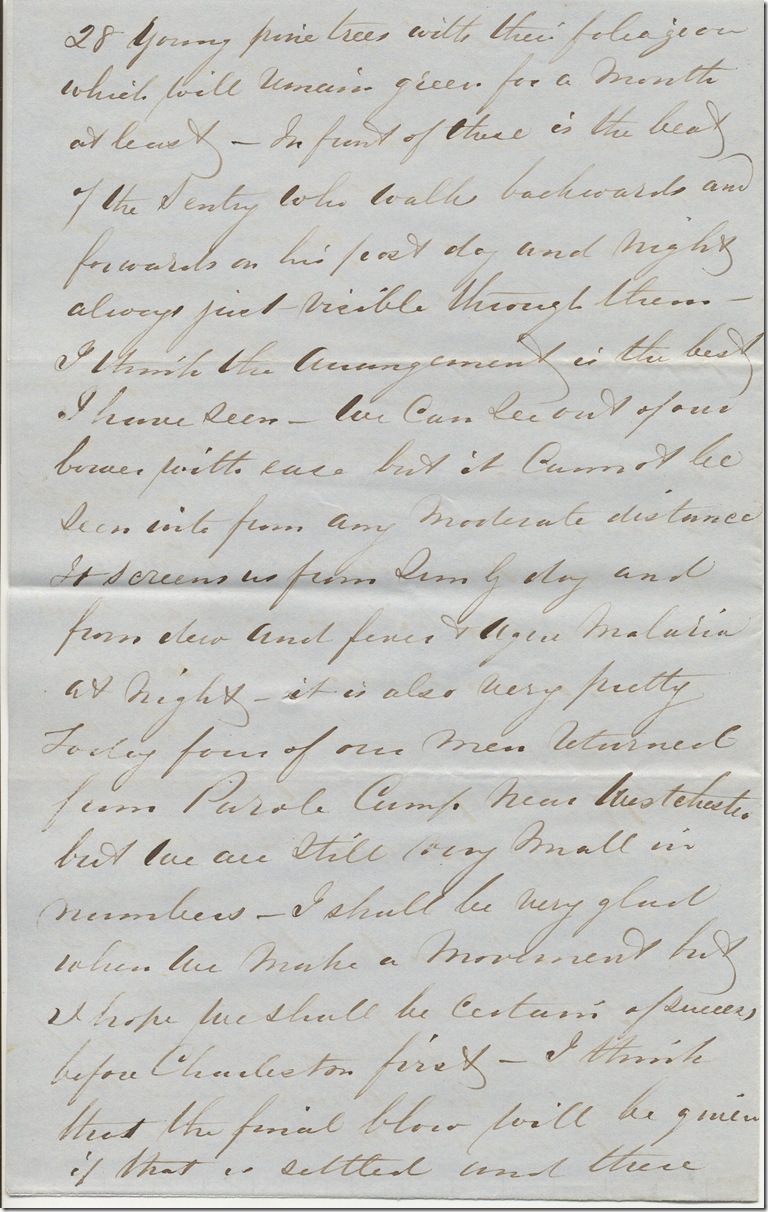 28 Young pine trees with their foliage on
which will remain green for a Month
at least – In front of these is the beat
of the Sentry who walks backwards and
forwards on his post day and Night
always just visible through them –
I think the Arrangement is the best
I have seen – We Can See out of our
bower with ease but it Cannot be
Seen into from any Moderate distance
It screens us from Sun by day and
from dew and fever & Ague Malaria
at Night – it is also very pretty
Today four of our Men returned
from Parole Camp Near Westchester
but We are Still very Small in
numbers – I shall be very glad
when We Make a Movement but
I hope we shall be Certain of success
before Charleston first – I think
that the final blow will be given
if that is settled and these